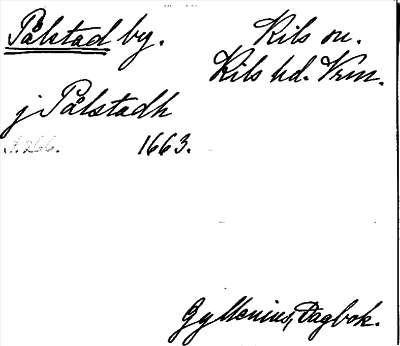 Pålstad by. Kils sn.
Kils hd. Vrm.
j Pålstadh
S. 266. 1663.
Gyllenius, Dagbok.